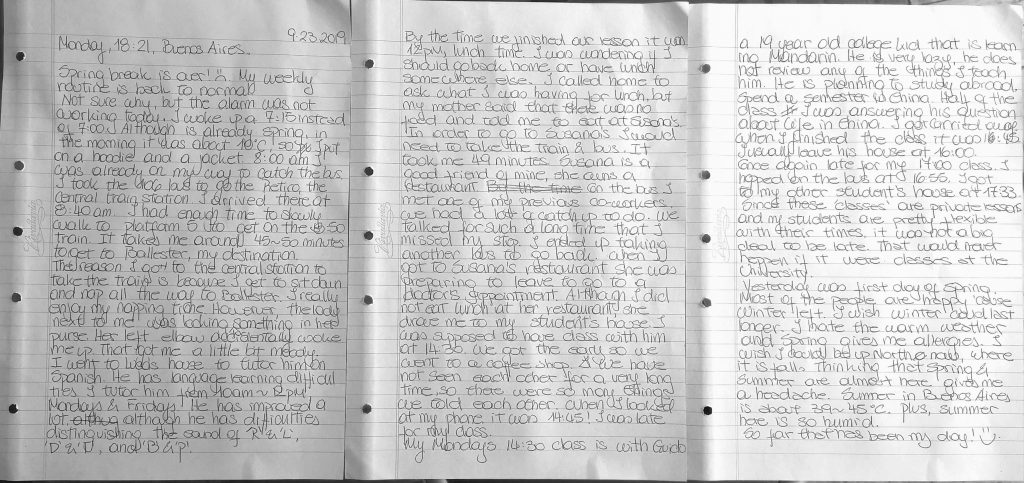 9.23.2019
Monday, 18:21, Buenos Aires.
Spring break is over! :( My weekly
routine is back to normal!
Not sure why, but the alarm was not
working today. I woke up a 7:15 instead
of 7:00. Although is already spring, in
the morning it was about 10°C! so I put
on a hoodie and a jacket. 8:00 am I
was already on my way to catch the bus.
I took the bus to go the Retiro, the
central train station. I arrived there at
8:40 am. I had enough time to slowly
walk to platform 5 to get on the 8:50
train. It takes me around 45~50 minutes
to get to Ballester, my destination.
The reason I got to the central station to
take the train is because I get to sit down
and nap all the way to Ballester. I really
enjoy my napping time. However, the lady
next to me was looking something in her
purse. Her left elbow accidentally woke
me up. That got me a little bit moody.
I went to house to tutor him on
Spanish. He has language learning difficul
ties. I tutor him from 10am ~ 12pm
Mondays & Fridays! He has improved a
lot. althoug although he has difficulties
distinguishing the sound of 'R' & 'L',
'D' & 'T', and 'B' & 'P'.
By the time we finished our lesson it was
12pm, lunch time. I was wondering if I
should go back home or have lunch
somewhere else. I called home to
ask what I was having for lunch, but
my mother said that there was no
food and told me to eat at Susana's.
In order to go to Susana's I would
need to take the train & bus. It
took me 49 minutes. Susana is a
good friend of mine, she owns a
restaurant. By the time On the bus I
met one of my previous co-workers,
we had a lot a catch up to do. We
talked for such a long time that I
missed my stop. I ended up taking
another bus to go back! When I
got to Susana's restaurant she was
preparing to leave to go to a
doctor's appointment. Although I did
not eat lunch at her restaurant she
drove me to my student's house. I
was supposed to have class with him
at 14:30. We got the early so we
went to a coffee shop. We have
not seen each other for a very long
time, so there were so many things
we told each other. When I looked
at my phone, it was 14:45! I was late
for my class.
My Mondays 14:30 class is with Guido
a 19 year old college kid that is learn
ing Mandarin. He is very lazy, he does
not review any of the things I teach
him. He is planning to study abroad.
Spend a semester in China. Half of the
class I was answering his question
about life in China. I got carried away
when I finished the class it was 16:45.
I usually leave his house at 16:00.
Once again late for my 17:00 class. I
hopped on the bus at 16:55. I got
to my other student's house at 17:33.
Since these 'classes' are private lessons
and my students are pretty flexible
with their times, it was not a big
deal to be late. That would never
happen if it were classes at the
University.
Yesterday was first day of spring.
Most of the people are happy 'cause
winter left. I wish winter could last
longer. I hate the warm weather
and spring gives me allergies. I
wish I could be up North now, where
it is fall. Thinking that spring &
summer are almost here gives me
a headache. Summer in Buenos Aires
is about 39~45°C. plus, summer
here is so humid.
So far that has been my day! :)